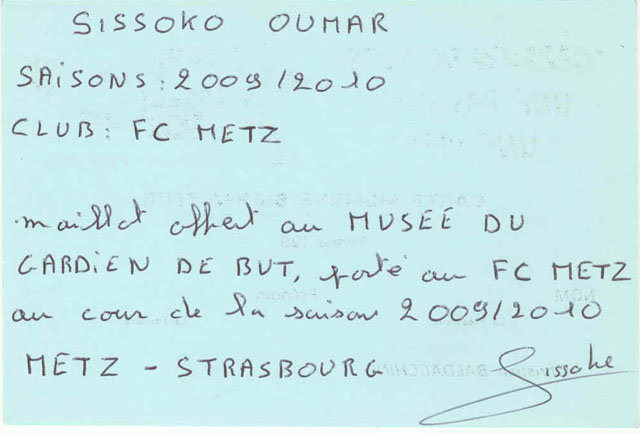 SISSOKO OUMAR
SAISONS: 2009/2010
CLUB: FC METZ
maillot offert au MUSEE DU
GARDIEN DE BUT, porté au FC METZ
au cour de la saison 2009/2010
METZ - STRASBOURG Sissoko